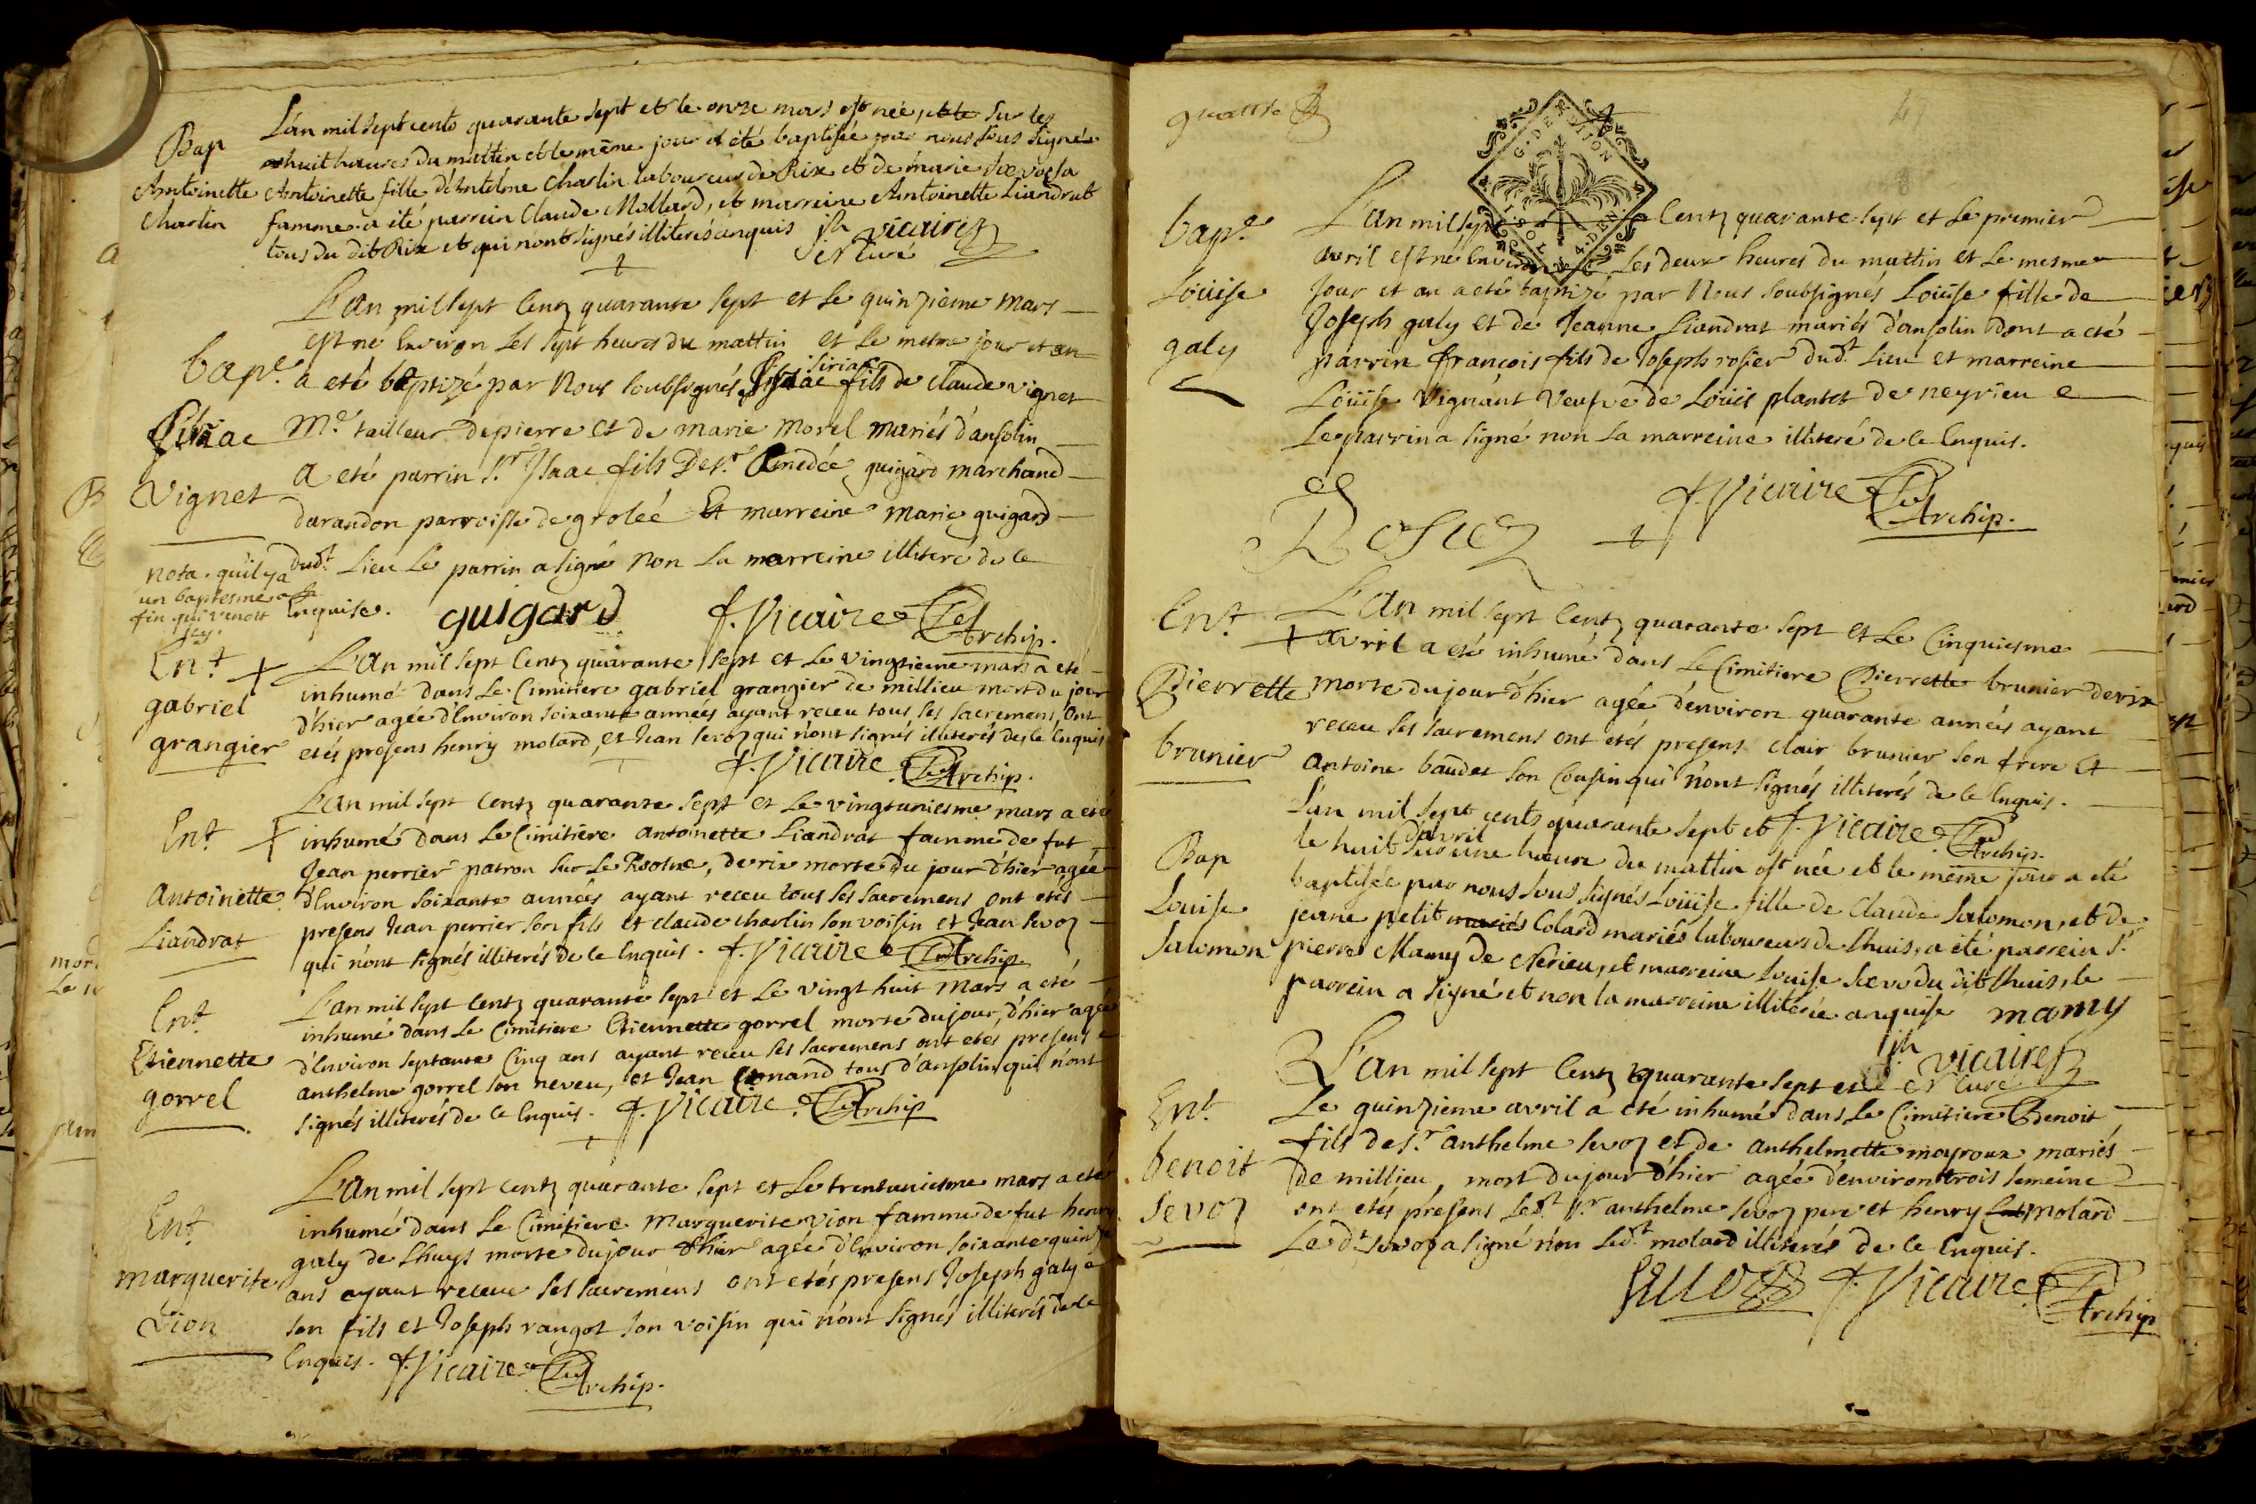 Bap
Antoinette
Charlin
L'an mil sept cents quarante sept et le onze mars est née, sur les
huit heures du mattin et le même jour a été baptisée par nous sous signés
Antoinette fille d'Antelme Charlin laboureur de Rix et de marie
famme. a été parrein Claude Mollard, et marreine Antoinette Liandrat
tous du dit Rix et qui n'ont signés illiterés enquis jh vicaire
et curé
bap.e
Siriac
Vignet
L'an mil sept centz quarante sept et le quinzieme mars
est né Environ les sept heures du mattin et le mesme jour et an
a eté baptizé par Nous soubsignés Siriac fils de claude vignet
M.e tailleur de pierre et de marie morel mariés d'ansolin
a eté parrin S.r Ysaac fils De S.r Amedée guigard marchand
darandon parroisse de grolée Et marreine marie guigard
dud.t Lieu Le parrin a signé Non La marreine illiteré de ce
Enquise. guigard f. Vicaire Archip.
nota. qu'il ya
un baptesme a la
fin qui venoit
icy.
En.t
gabriel
grangier
L'an mil sept centz quarante sept et Le vingtieme mars a eté
inhumé dans Le Cimitiere gabriel grangier de millieu mort du jour
d'hier agée d'Environ soixante années ayant receu tous ses sacremens, Ont
etés presens henry molard, et Jean sevoz qui n'ont signés illiterés de ce Enquis
f. Vicaire Archip.
En.t
Antoinette
Liandrat
L'an mil sept centz quarante sept et Le vingtuniesme mars a eté
inhumé dans Le Cimitiere antoinette Liandrat famme de fut
Jean perrier patron sur Le Rosne, de rix morte du jour d'hier agée
d'Environ soixante années ayant receu tous ses sacremens ont etés
presens Jean perrier son fils et claude charlin son voisin et Jean sevoz
qui n'ont signés illiterés de ce Enquis. f. Vicaire Archip.
En.t
Etiennette
gorrel
L'an mil sept centz quarante sept et Le vingt huit mars a eté
inhumé dans Le Cimitiere Etiennette gorrel morte du jour d'hier agée
d'Environ septante Cinq ans ayant receu ses sacremens ont etés presens
anthelme gorrel son neveu, et Jean tous d'ansolin qui n'ont
signés illiterés de ce Enquis. f. Vicaire Archip
En.t
marguerite
Vion
L'an mil sept centz quarante sept et Le trentuniesme mars a eté
inhumé dans Le Cimitiere Marguerite Vion famme de fut henry
galy de Lhuys morte du jour d'hier agée d'Environ soixante quinze
ans ayant receue ses sacremens ont etés presens Joseph galy
son fils et Joseph rangot son voisin qui n'ont signés illiterés de ce
Enquis. f. Vicaire Archip.
quattre
G. DE DIJON
1 SOL 4 DEN
bap.e
Loüise
galy
L'an mil sept Centz quarante sept et Le premier
avril est né Environ Les deux heures du mattin et Le mesme
Jour et an a eté baptizé par Nous soubsignés Loüise fille de
Joseph galy et de Jeanne Liandrat mariés d'ansolin dont a eté
parrin françois fils de Joseph rosier dud.t Lieu et marreine
Loüise Vignant Veufve de Loüis plantet de neyrieu
Le parrin a signé non La marreine illiteré de ce Enquis.
f. Vicaire Archip.
Rosier
En.t
Pierrette
brunier
L'an mil sept Centz quarante sept et Le Cinquiesme
avril a eté inhumé dans Le Cimitiere Pierrette brunier de rix
morte du jour d'hier agée d'environ quarante années ayant
receu ses sacremens ont etés presens clair brunier son frere Et
Antoine baudet son Cousin qui n'ont signés illiterés de ce Enquis.
f. Vicaire Archip.
Bap
Louise
Salomon
L'an mil sept cents quarante sept et
le huit d'avril sur une heure du mattin est née et le même jour a été
baptisée par nous sous signés Loüise fille de Claude Salomon, et de
jeane petit Colard mariés laboureurs de Lhuis, a été parrein S.r
pierre Mamy de Nerieu, et marreine Louise du dit Lhuis, le
parrein a signé et non la marreine illitérée enquise mamy
jh vicaire
et curé
En.t
benoit
Sevoz
L'an mil sept Centz quarante sept et
Le quinzieme avril a eté inhumé dans Le Cimitiere Benoit
fils de S.r anthelme sevoz et de anthelmette meyroux mariés
de millieu, mort du jour d'hier agée d'environ trois semeine
ont etés présens Led.t S.r anthelme sevoz pere et henry molard
Le d.t sevoz a signé non Led.t molard illiterés de ce Enquis.
Sevoz f. Vicaire Archip